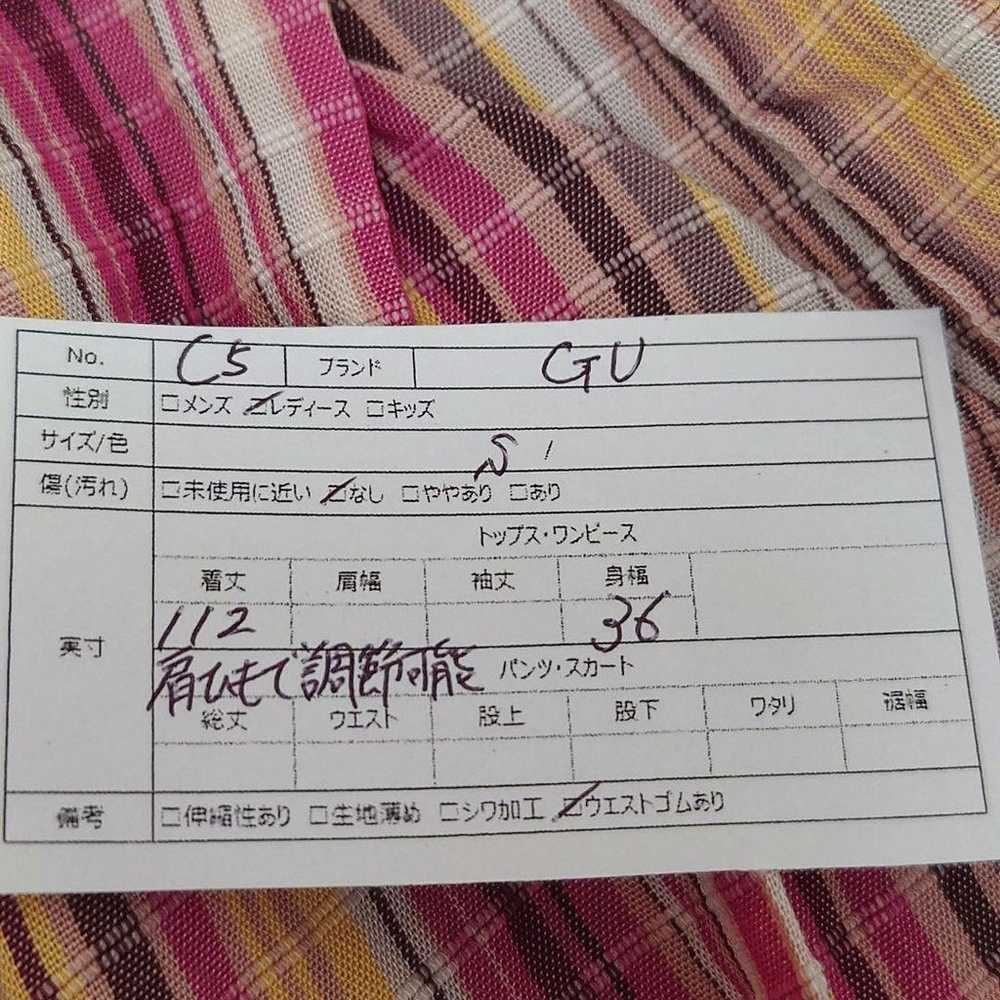 No. C5 ブランド GU
性別 □メンズ □レディース □キッズ
サイズ/色 S /
傷(汚れ) □未使用に近い □なし □ややあり □あり
トップス・ワンピース
着丈 肩幅 袖丈 身幅
実寸 112 36
肩ひもで調節可能 パンツ・スカート
総丈 ウエスト 股上 股下 ワタリ 裾幅
備考 □伸縮性あり □生地薄め □シワ加工 □ウエストゴムあり